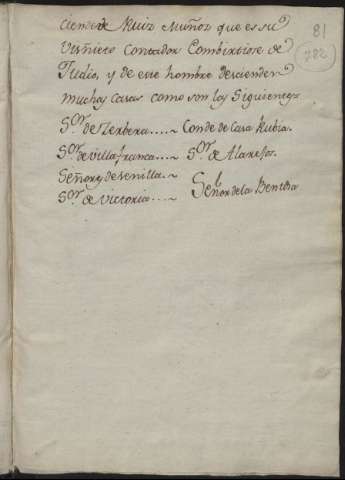 ciende Ruiz Muñoz que es su
Visñieto Contador Combirtiose de
Judio, y de este hombre descienden
muchas casas como son las siguientes
Sor. de Zerbera..... Conde de Casa Rubia.
Sor. de Villafranca.... Sor. de Alarejos.
Señores de Venilla.
Señor de la Bentosa
Sor. de Victoria....
81
782